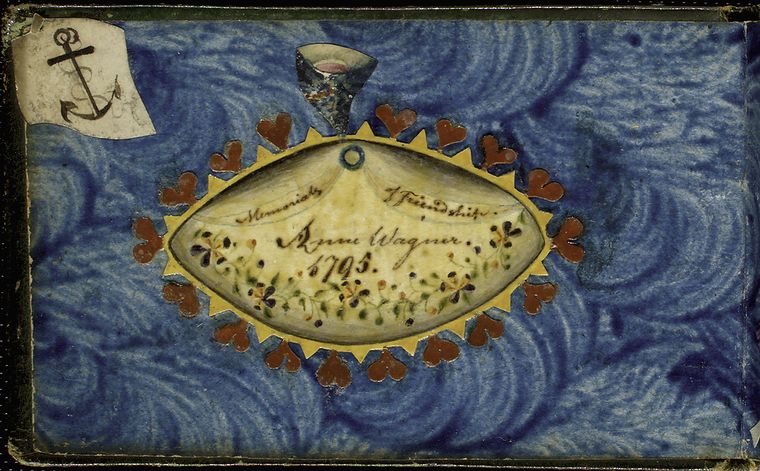 Memorials of Friendship.
Anne Wagner.
1795.